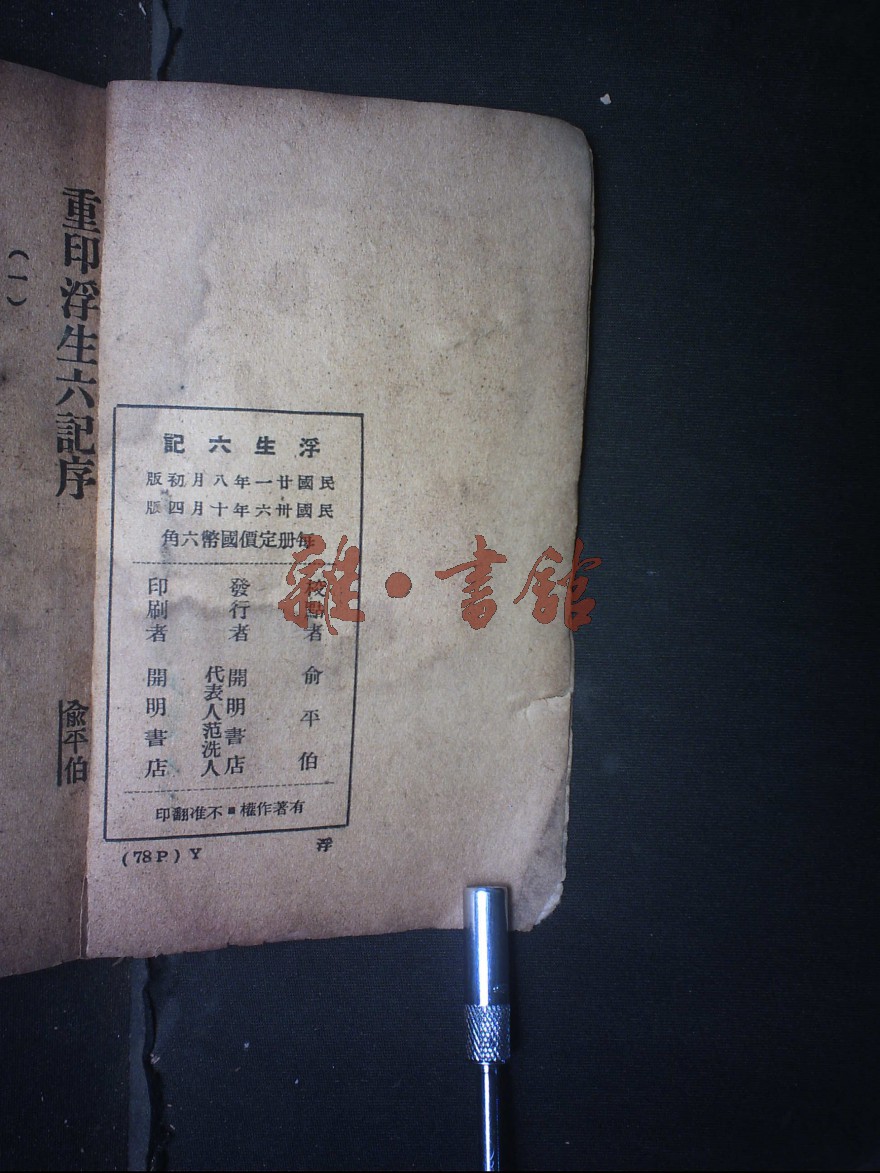 浮生六記
民國廿一年八月初版
民國卅六年十月四版
每册定價國幣六角
校點者 俞平伯
發行者 開明書店
代表人范洗人
印刷者 開明書店
有著作權■不准翻印
浮
(78P) Y
重印浮生六記序
俞平伯
(一)
雜·書館